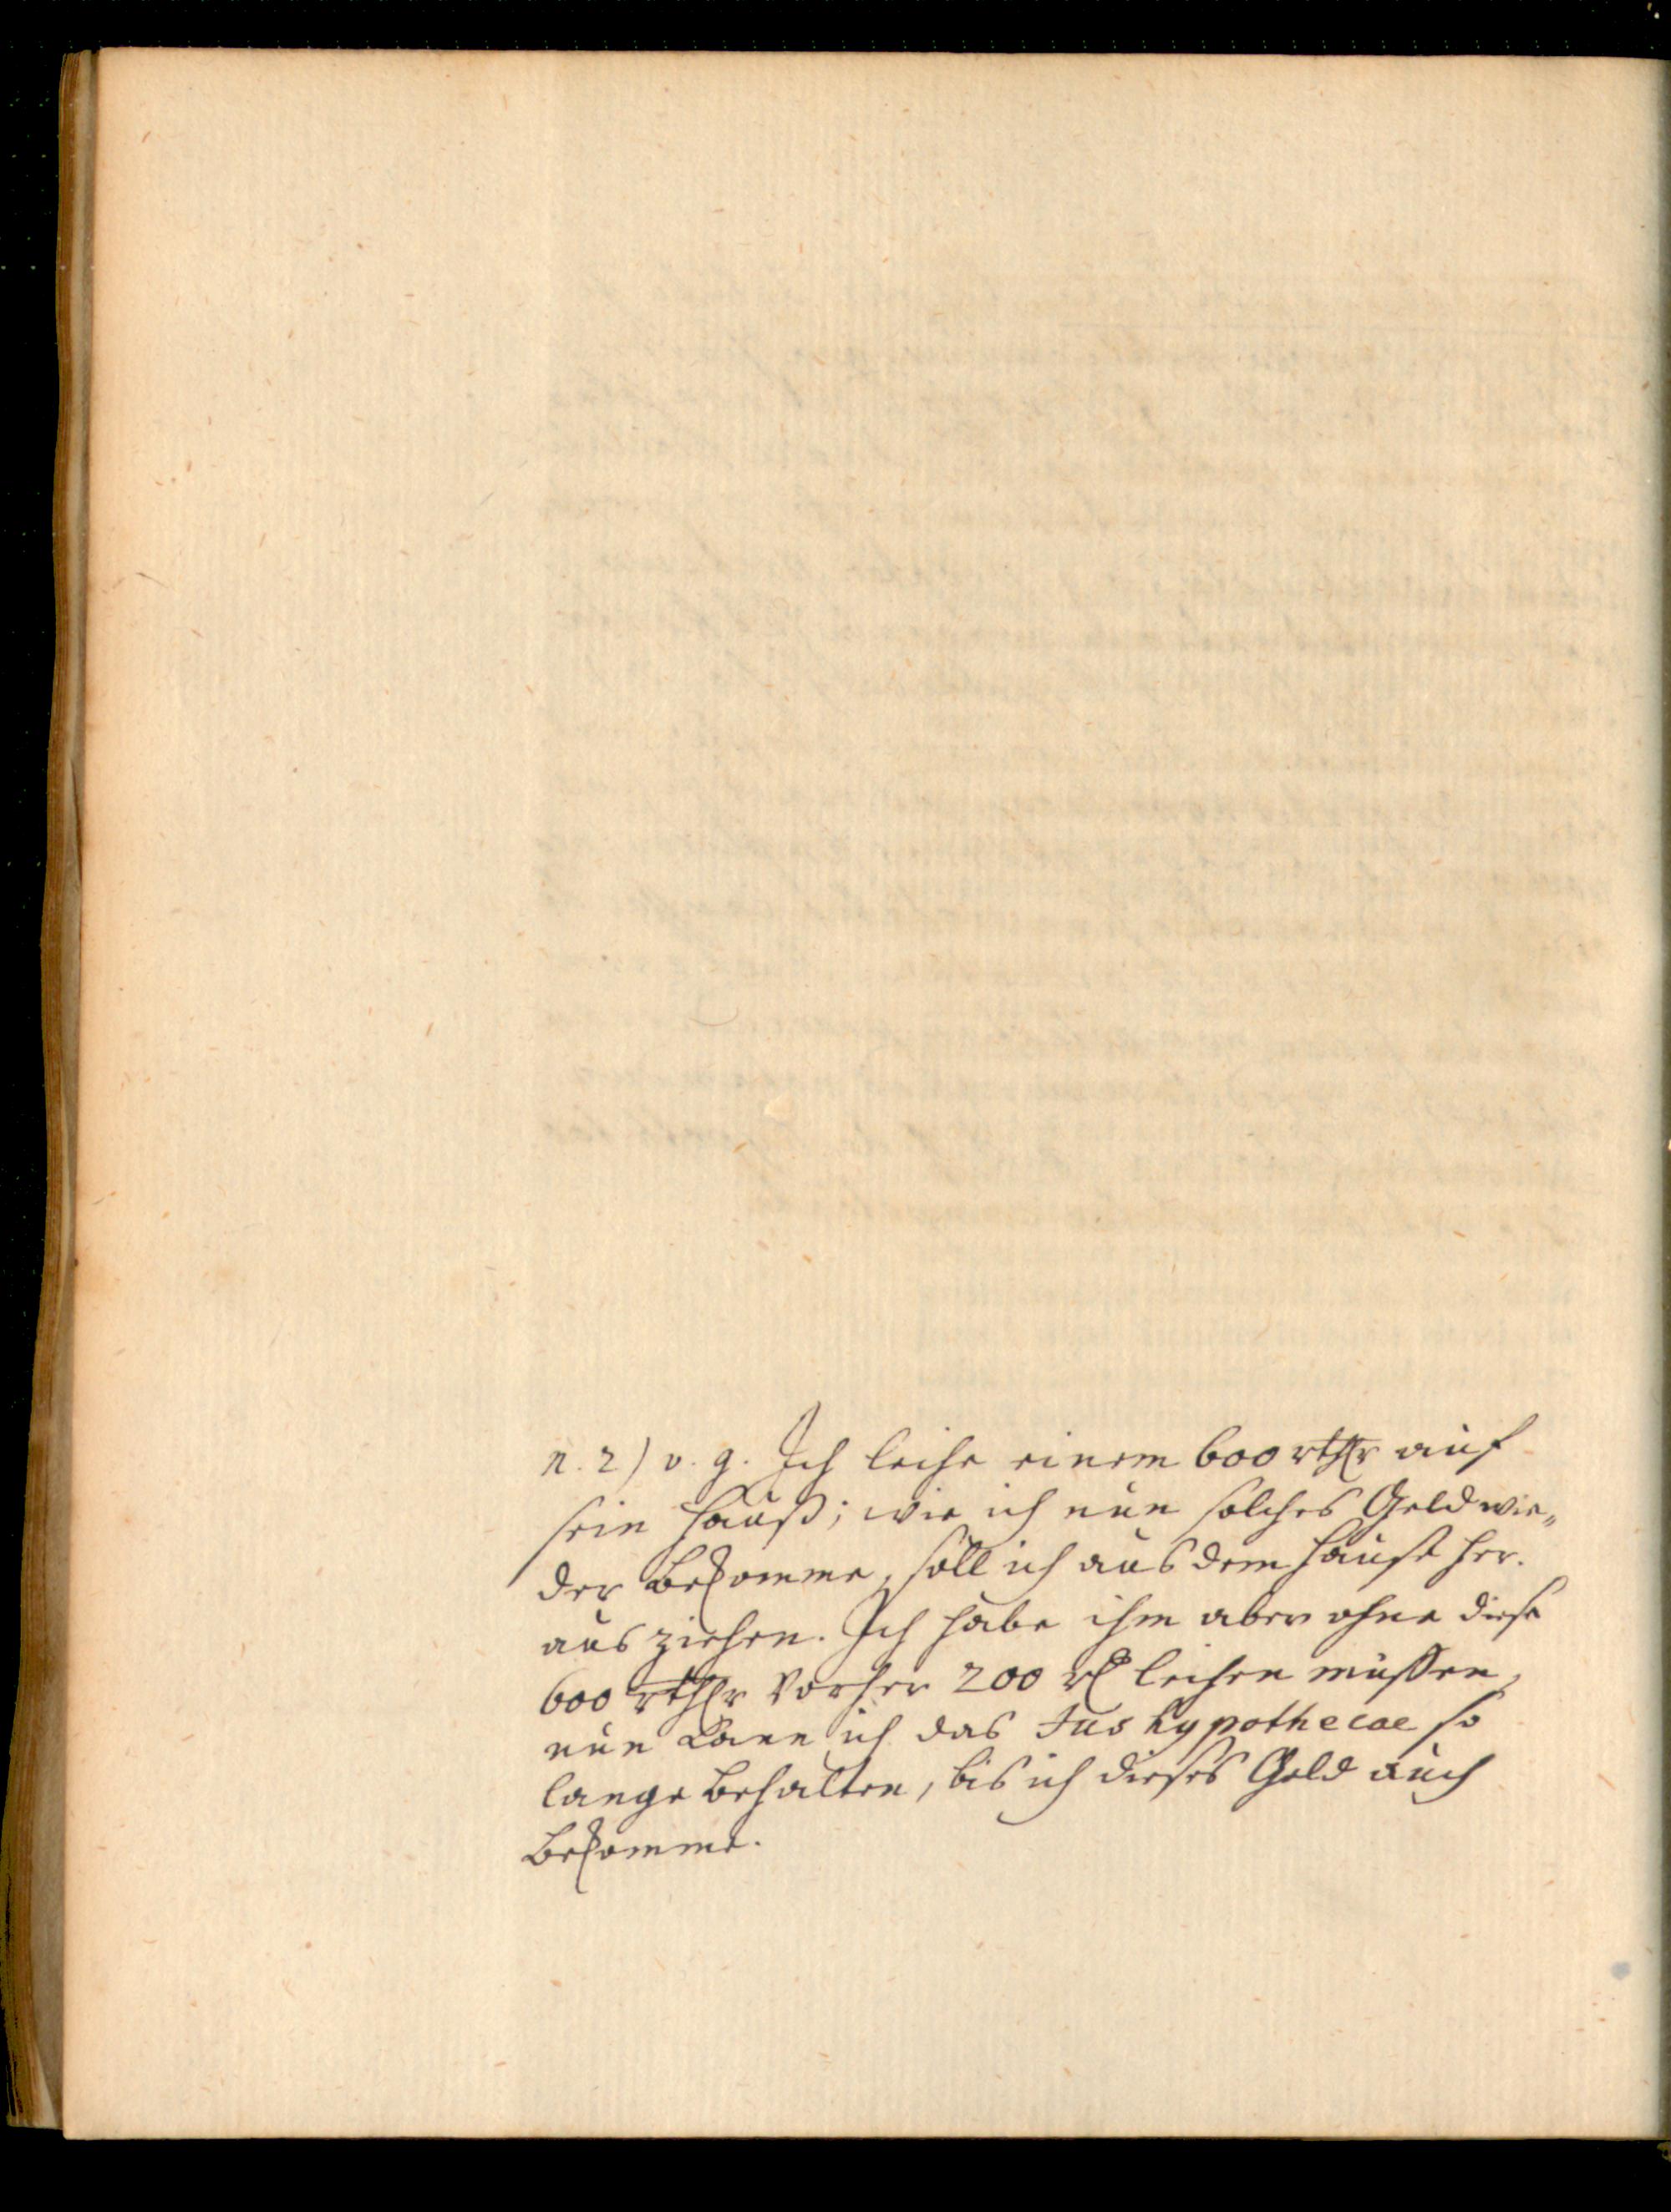 n. 2) v. g. Ich leihe einem 600 rthlr auf
sein Hauß; wie ich nun solches Geld wie„
der bekomme, soll ich aus dem Hause her.
aus ziehen. Ich habe ihm aber ohne diese
600 rthlr vorher 200 rl leihen müssen,
nun kann ich das Jus hypothecae so
lange behalten, bis ich dieses Geld auch
bekomme.